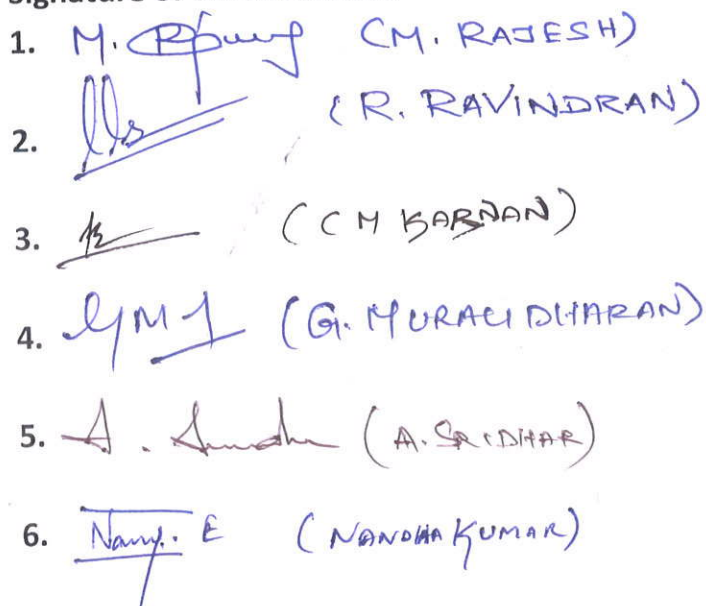 Signature of
1. M. (M. RAJESH)
2. (R. RAVINDRAN)
3. (C M KARNAN)
4. GM (G. MURALIDHARAN)
5. A. (A. SRIDHAR)
6. E (NANDHA KUMAR)